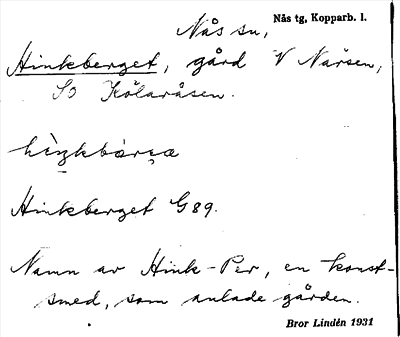 Nås sn,
Nås tg, Kopparb. l.
Hinkberget, gård V Närsen,
SO Kölaråsen.
Hinkberget G 89.
Namn av Hink-Per, en konst-
smed, som anlade gården.
Bror Lindén 1931